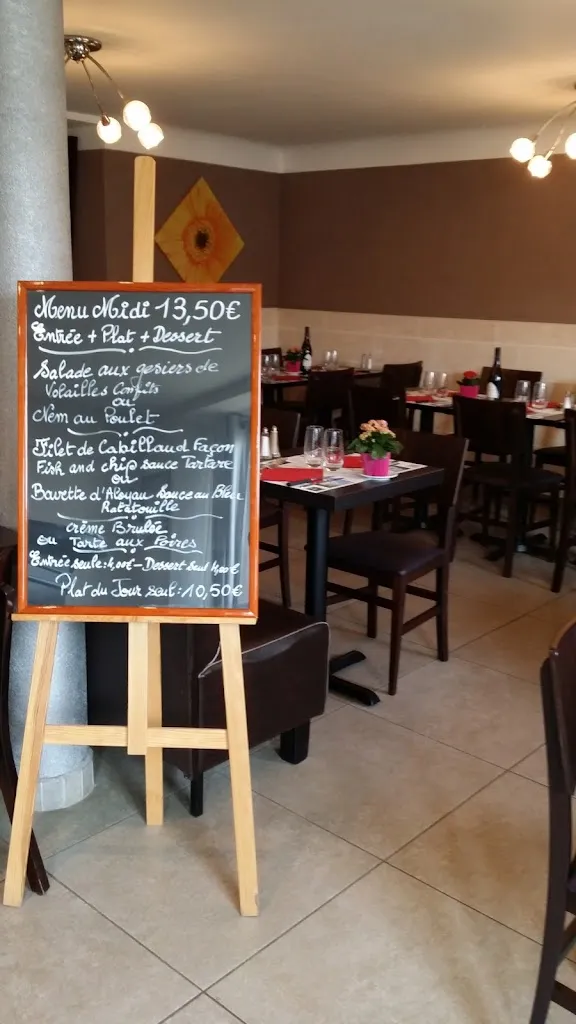 Menu Midi 13,50€
Entrée + Plat + Dessert
Salade aux gesiers de
Volailles Confits
ou
Nem au Poulet
Filet de Cabillaud Façon
Fish and chip sauce Tartare
ou
Bavette d'Aloyau Sauce au Bleu
Ratatouille
Crème Brulée
ou Tarte aux Poires
Entrée seule: 4,00€ - Dessert seul 4,00€
Plat du Jour seul: 10,50€